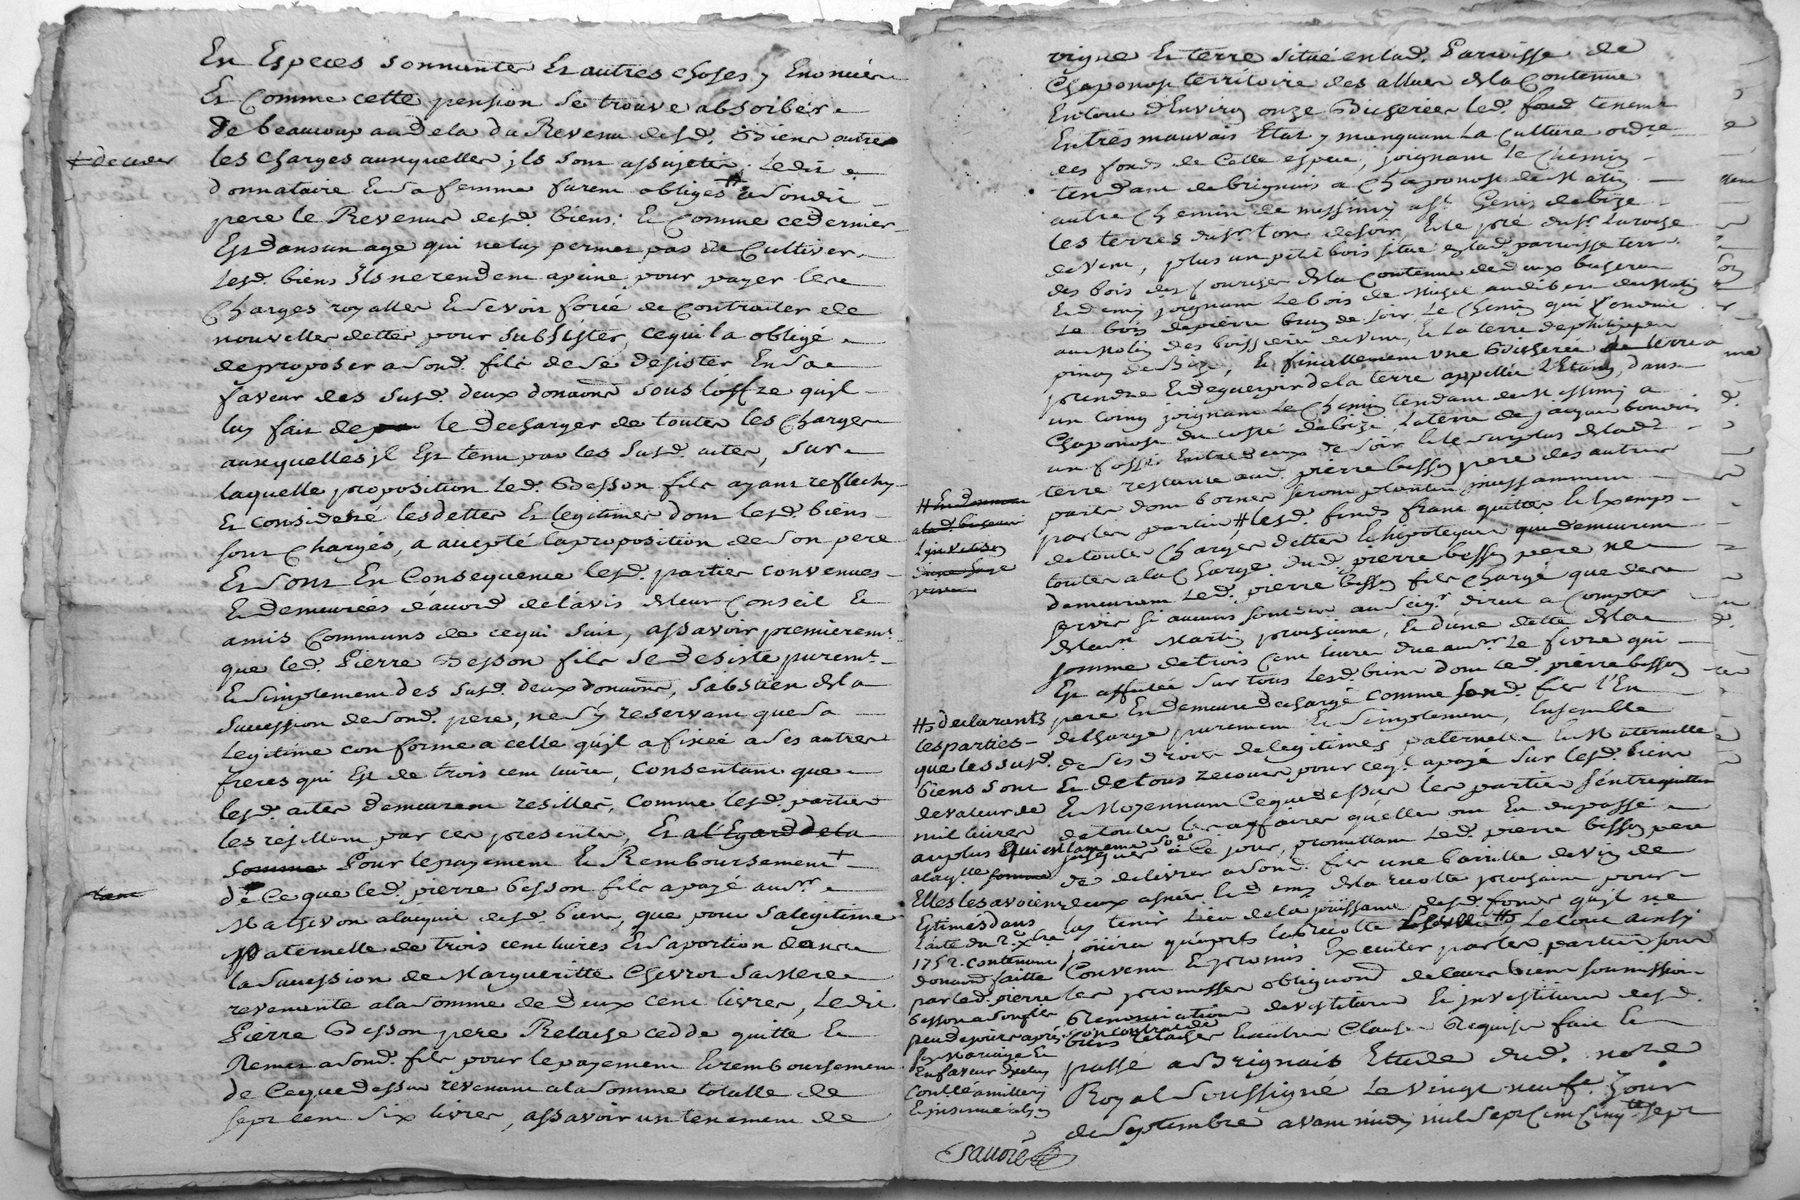 En Especes sonnantes Et autres choses y Enoncées
Et Comme cette pension se trouve absorber
de beaucoup audela du Revenu desd. Biens outre
les Charges auxquelles jls sont assujetis. Ledit
# de ceder
donnataire Et sa femme furent obligés # a sondit
pere le Revenus desd. biens: Et Comme ce dernier
Est dans un age qui ne luy permet pas de Cultiver
lesd. biens Jls ne rendent apeine pour payer les
Charges royalles Et se voir forcé de Contracter de
nouvelles dettes pour subsister, ce qui la obligé
de proposer a sond. fils de se desister En sa
faveur des susd. deux donaons sous l'offre quil
luy fait de le decharger de toutes les Charges
auxquelles jl Est tenu par les susd. actes, sur
laquelle proposition led. Besson fils ayant reflechy
Et Consideré les dettes Et legitimes dont lesd. biens
sont Chargés, a accepté la proposition de son pere
Et sont En Consequence lesd. parties convenues
Et demeurées d'accord de l'avis de leur Conseil Et
amis Communs de ce qui suit, assavoir premierement
que led. Pierre Besson fils se desiste purement
Et simplement des susd. deux donaons, s'abstien de la
succession de sond. pere, ne s'y reservant que sa
legitime conforme a celle quil a fixée a ses autres
freres qui Est de trois cent livres, Consentant que
lesd. actes demeurent resilliés, Comme lesd. parties
les resillient par ces presentes, Et a l'Egard de la
somme Pour le payement Et Remboursement +
de Ce que led. pierre besson fils a payé au sr.
Mathevon a l'acquit desd. biens, que pour sa legitime
paternelle de trois cent livres Et sa portion dans
la succession de Margueritte Chevrot sa Mere
revenante a la somme de deux cent livres, Ledit
Pierre Besson pere Relache cedde quitte Et
Remet a sond. fils pour le payement Et remboursement
de Ce que dessus revenant a la somme totalle de
sept cent six livres, assavoir un tenement de
vigne Et terre situé en lad. Paroisse de
Chaponost territoire des alluer de la Contenue
En tout d'Environ onze Bicherées led. fond tenement
En tres mauvais Etat y manquant la Culture ordre
des fonds de Cette espece, joignant le Chemin
tendant de brignais a Chaponost de Matin
autre Chemin de messimy a St. Genis de bize
de vent, plus un petit bois situé en lad. paroisse terr.
des bois de la Contenue de deux bicherées
Et demy joignant le bois de de Matin
Le bois de pierre de soir Le Chemin qui Conduit
de bize, Et finallement une Bicherée de terre a
prendre Et de la terre appellée L'Etang, dans
un Coing joignant le Chemin tendant de Messimy a
Chaponost du costé de bize, La terre de jacques
un fossé Entre deux de soir Et le surplus de lad.
terre restante aud. pierre besson pere des autres
parts dont bornes seront plantées
par les parties # lesd. fonds franc quittes Et Exempts
de toutes Charges dettes Et hipoteques qui demeurent
toutes a la Charge dud. pierre besson pere ne
demeurant led. pierre besson fils Chargé que des
servis si aucuns sont dus au Seigr. direct a Compter
de la St. Martin prochaine, Et d'une dette de la
somme de trois Cent livres due au sr. Le fivre qui
Est affectée sur tous lesd. biens dont led. pierre besson
pere En demeure dechargé Comme sond. fils l'En
decharge purement Et simplement, Ensemble
de ses droits de legitimes paternelle Et Maternelle
Et de tous recours pour ce quil a payé sur lesd. biens
Et Moyennant Ce que dessus les parties s'entrequittent
de toutes les affaires qu'elles ont Eu du passé
jusques a Ce jour, promettant led. pierre besson pere
de delivrer a sond. fils une barille de vin de
deux asnées Et demy de la recolte prochaine pour
luy tenir Lieu de la jouissance desd. fonds quil ne
jouira qu'après la recolte levée #, Le tout ainsi
Convenu Et promis Executer par les parties sous
les promesses obligaond. de leurs biens soumission
Renonciation devestiture Et jnvestiture desd.
biens relachés Et autres Clauses Requises fait Et
passé a Brignais Etude dud. nore
Royal soussigné Le vingt neufe. Jour
de septembre avant midy mil sept Cent Cinqte sept
# declarants
les parties
que les susd.
biens sont
de valeur de
mil livres
au plus Qui Est la meme sode.
a laqlle somme
Elles les avoient
Estimés dans
l'acte du 2e. xbre
1752. contenant
donaon faitte
par led. pierre
besson a son fils
peu de jours apres
son contrat de
Mariage Et
En faveur d'jcelluy
Conllé a milliery
Et jnsinué a Lyon
Sauvré